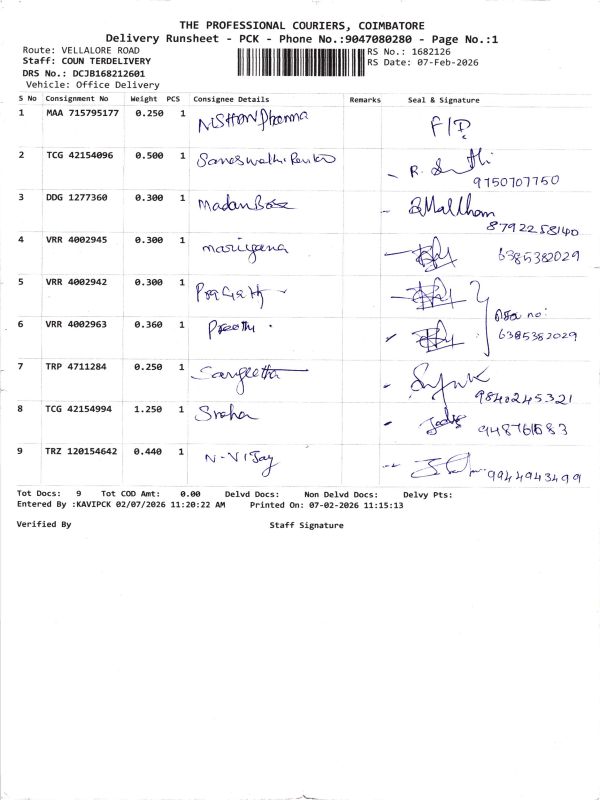 THE PROFESSIONAL COURIERS, COIMBATORE
Delivery Runsheet - PCK - Phone No.:9047080280 - Page No.:1
Route: VELLALORE ROAD
RS No.: 1682126
Staff: COUN TERDELIVERY
RS Date: 07-Feb-2026
DRS No.: DCJB168212601
Vehicle: Office Delivery
S No Consignment No Weight PCS Consignee Details Remarks Seal & Signature
1 MAA 715795177 0.250 1
2 TCG 42154096 0.500 1 R.
9750707750
3 DDG 1277360 0.300 1 Madan Bose
8792258140
4 VRR 4002945 0.300 1 mariyana 6385382029
5 VRR 4002942 0.300 1
no:
6 VRR 4002963 0.360 1 Preethi 6385382029
7 TRP 4711284 0.250 1 Sangeetha
9840245321
8 TCG 42154994 1.250 1 Sneha
9 TRZ 120154642 0.440 1 N-Vijay 9944943499
Tot Docs: 9 Tot COD Amt: 0.00 Delvd Docs: Non Delvd Docs: Delvy Pts:
Entered By :KAVIPCK 02/07/2026 11:20:22 AM Printed On: 07-02-2026 11:15:13
Verified By Staff Signature